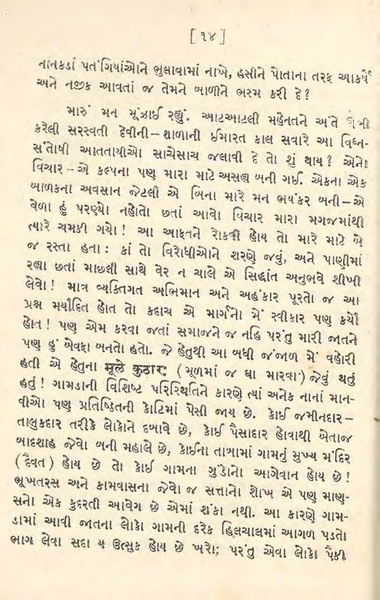 [ ૧૪ ]
નાનકડાં પતંગિયાંઓને ભુલાવામાં નાખે, હસીને પોતાના તરફ આકર્ષે
અને નજીક આવતાં જ તેમને બાળીને ભસ્મ કરી દે?
મારું મન મૂંઝાઈ રહ્યું. આટઆટલી મહેનતને અંતે
કરેલી સરસ્વતી દેવીની–શાળાની ઈમારત કાલ સવારે આ વિઘ્ન-
સંતોષી આતતાયીઓ સાચેસાચ જલાવી દે તો શું થાય? એનો
વિચાર–એ કલ્પના પણ મારા માટે અસહ્ય બની ગઈ. એકના એક
બાળકના અવસાન જેટલી એ બિના મારે મન ભયંકર બની–એ
વેળા હું પરણ્યો નહોતો છતાં આવો વિચાર મારા મગજમાંથી
ત્યારે ચમકી ગયો! આ આફતને રોકવી હોય તો મારે માટે બે
જ રસ્તા હતા: કાં તો વિરોધીઓને શરણે જવું, અને પાણીમાં
રહ્યા છતાં માછલી સાથે વેર ન ચાલે એ સિદ્ધાંત અનુભવે શીખી
લેવો! માત્ર વ્યક્તિગત અભિમાન અને અહંકાર પૂરતો જ આ
પ્રશ્ન મર્યાદિત હોત તો કદાચ એ માર્ગનો મેં સ્વીકાર પણ કર્યો
હોત! પણ એમ કરવા જતાં સમાજને જ નહિ પરંતુ મારી જાતને
પણ હું બેવફા બનતો હતો. જે હેતુથી આ બધી જંજાળ મેં વહોરી
હતી એ હેતુના મૂલે કુઠારઃ (મૂળમાં જ ઘા મારવા) જેવું થતું
હતું! ગામડાની વિશિષ્ટ પરિસ્થિતિને કારણે ત્યાં અનેક નાનાં માન-
વીઓ પણ પ્રતિષ્ઠિતની કોટિમાં પેસી જાય છે. કોઈ જમીનદાર–
તાલુકદાર તરીકે લોકોને દબાવે છે, કોઈ પૈસાદાર હોવાથી બેતાજ
બાદશાહ જેવો બની મહાલે છે, કોઈના તાબામાં ગામનું મુખ્ય મંદિર
(દૈવત) હોય છે તો કોઈ ગામના ગુંડાનો આગેવાન હોય છે!
ભૂખતરસ અને કામવાસના જેવો જ સત્તાનો શોખ એ પણ માણ-
સનો એક કુદરતી આવેગ છે એમાં શંકા નથી. આ કારણે ગામ-
ડામાં આવી જાતના લોકો ગામની દરેક હિલચાલમાં આગળ પડતો
ભાગ લેવા સદા ય ઉત્સુક હોય છે ખરો; પરંતુ એવા લોકો પૈકી